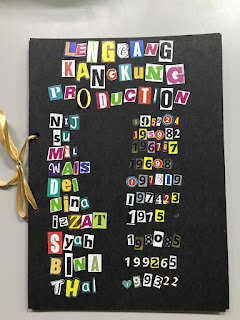 LENGGANG
KANGKUNG
PRODUCTION
Nij
su 198082
MiL 196787
WAIS 19698
Dei 197819
Nina 197423
izZAT 1975
Syah 198085
BINA 199265
THal 199322